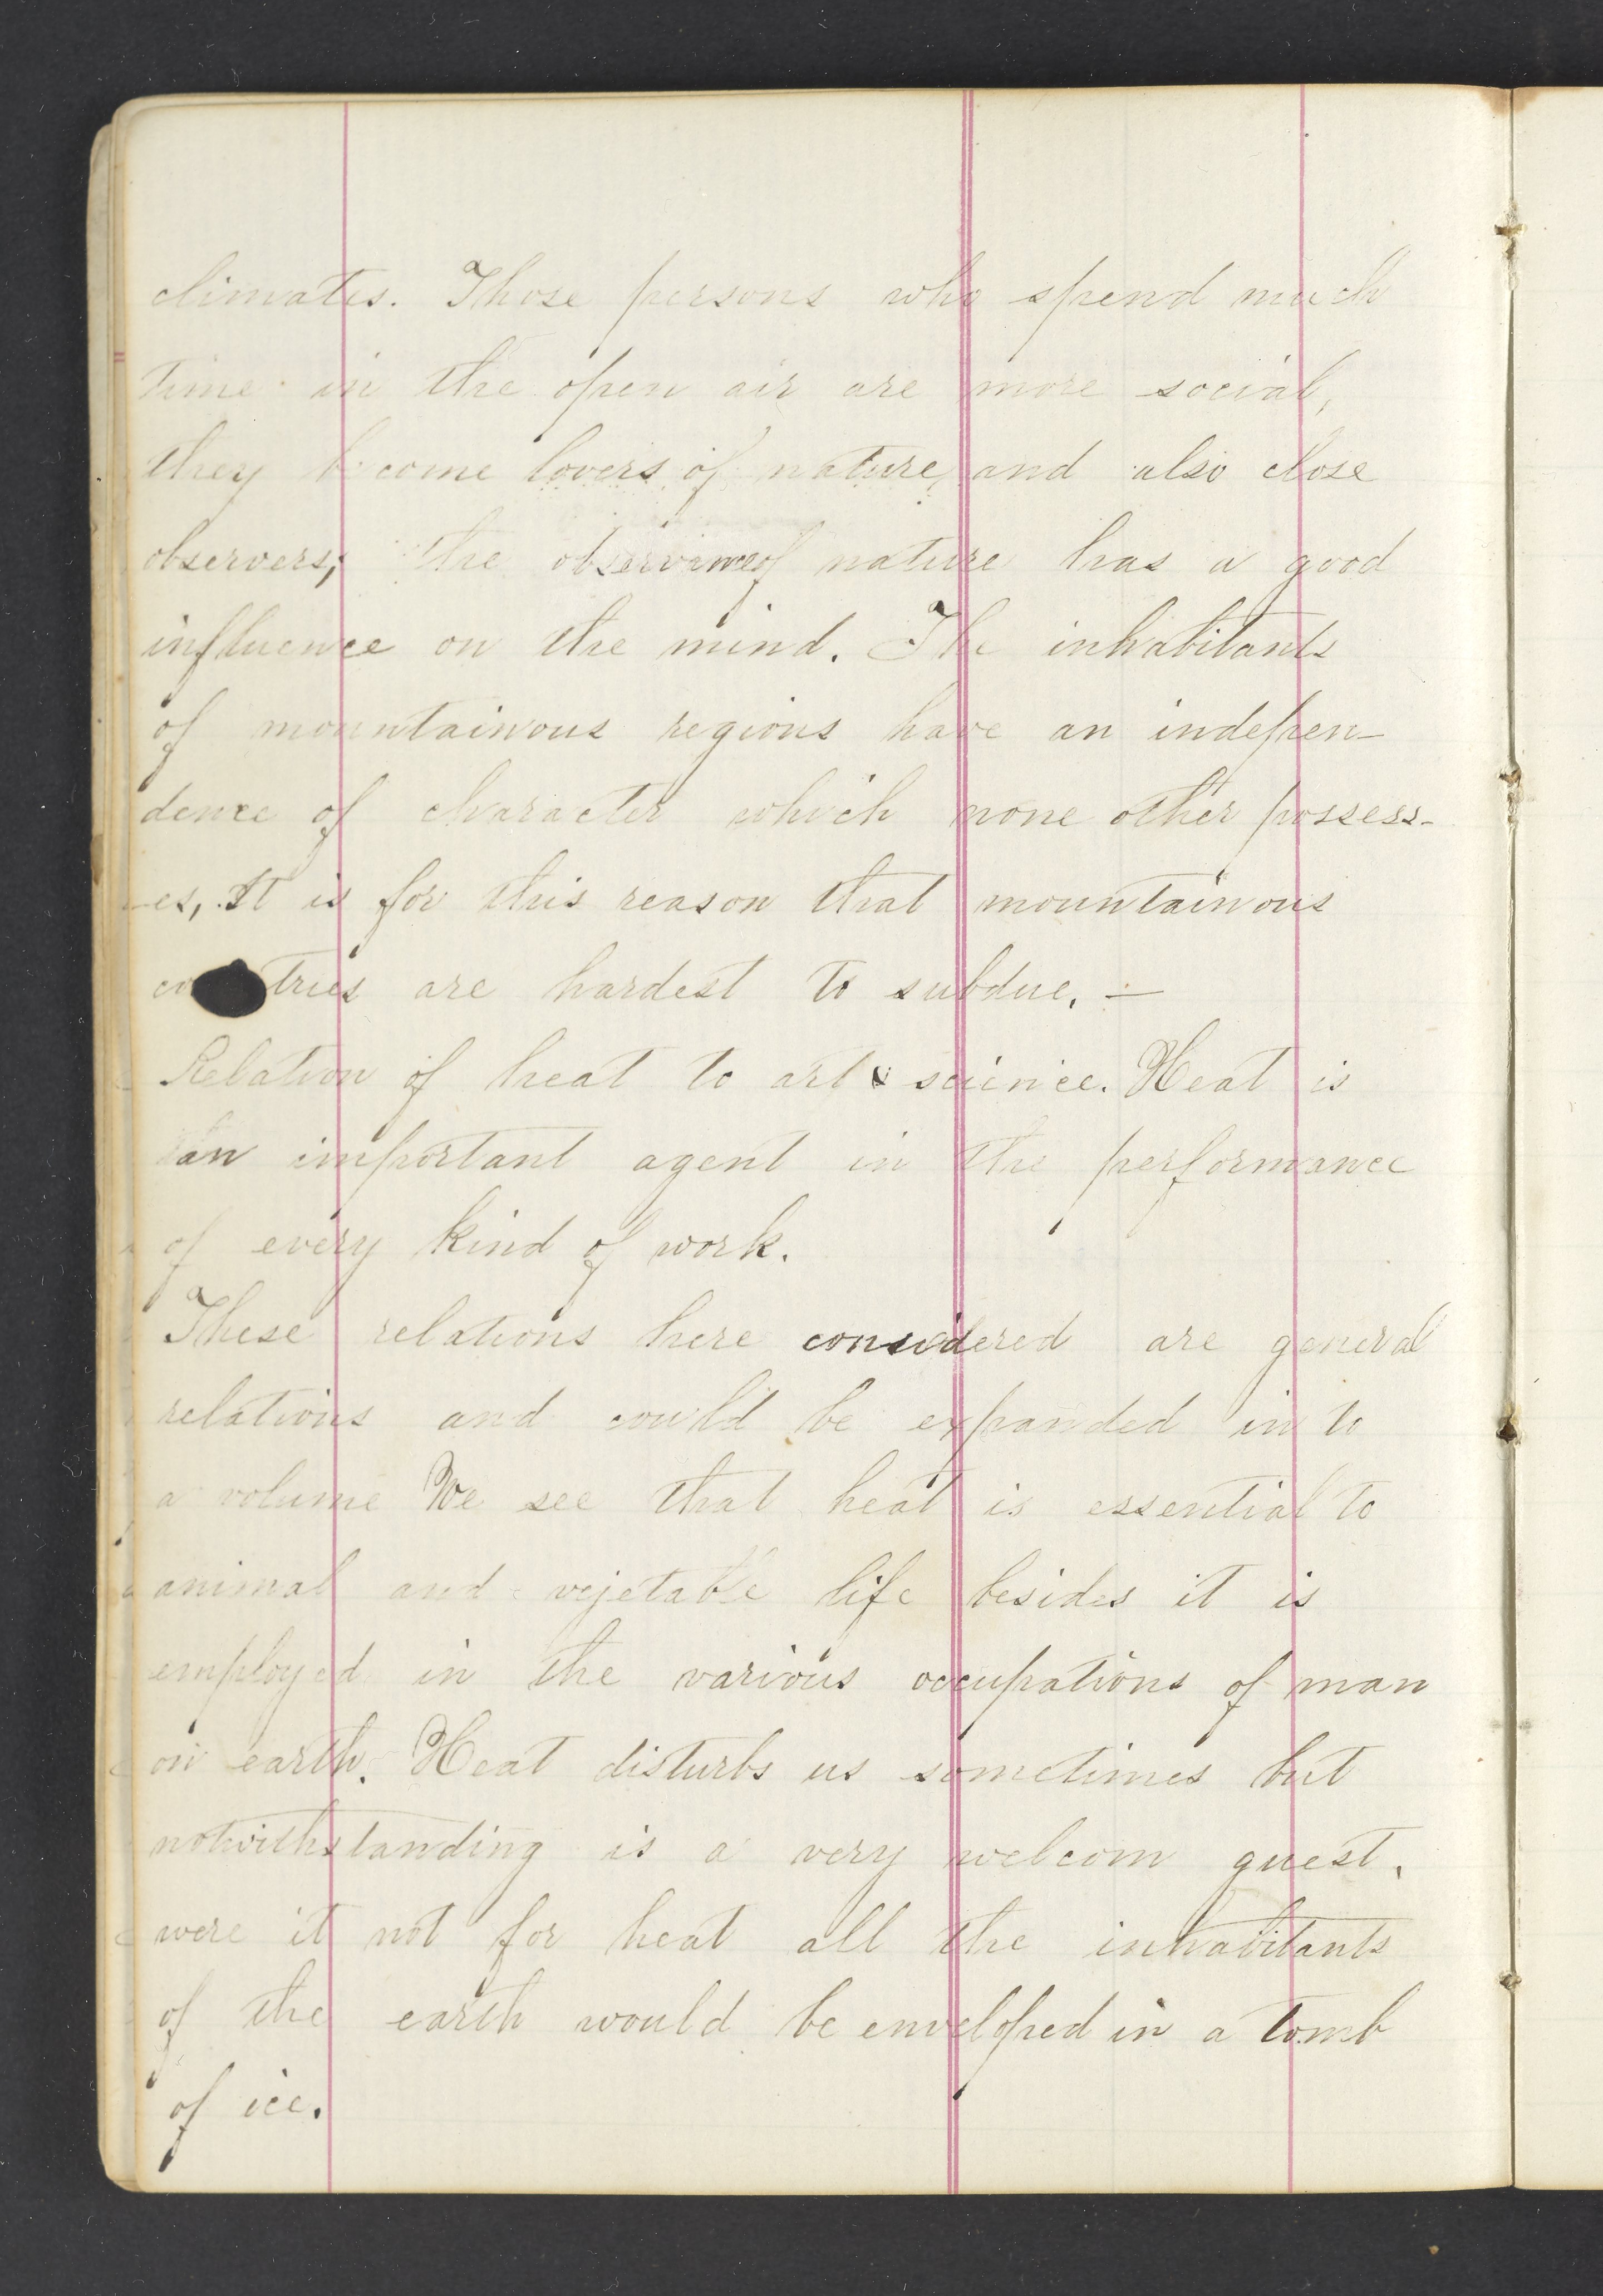 climates. Those persons who spend much
time in the open air are more social,
they become lovers of nature, and also close
observers; the observance of nature has a good
influence on the mind. The inhabitants
of mountainous regions have an indepen-
dence of character which none other possess-
-es, It is for this reason that mountainous
co tries are hardest to subdue. —
Relation of heat to art & science. Heat is
an important agent in the performance
of every kind of work.
These relations here considered are general
relations and could be expanded in to
a volume We see that heat is essential to
animal and vejetable life besides it is
employed in the various occupations of man
on earth. Heat disturbs us sometimes but
notwithstanding is a very welcom guest.
were it not for heat all the inhabitants
of the earth would be enveloped in a tomb
of ice.